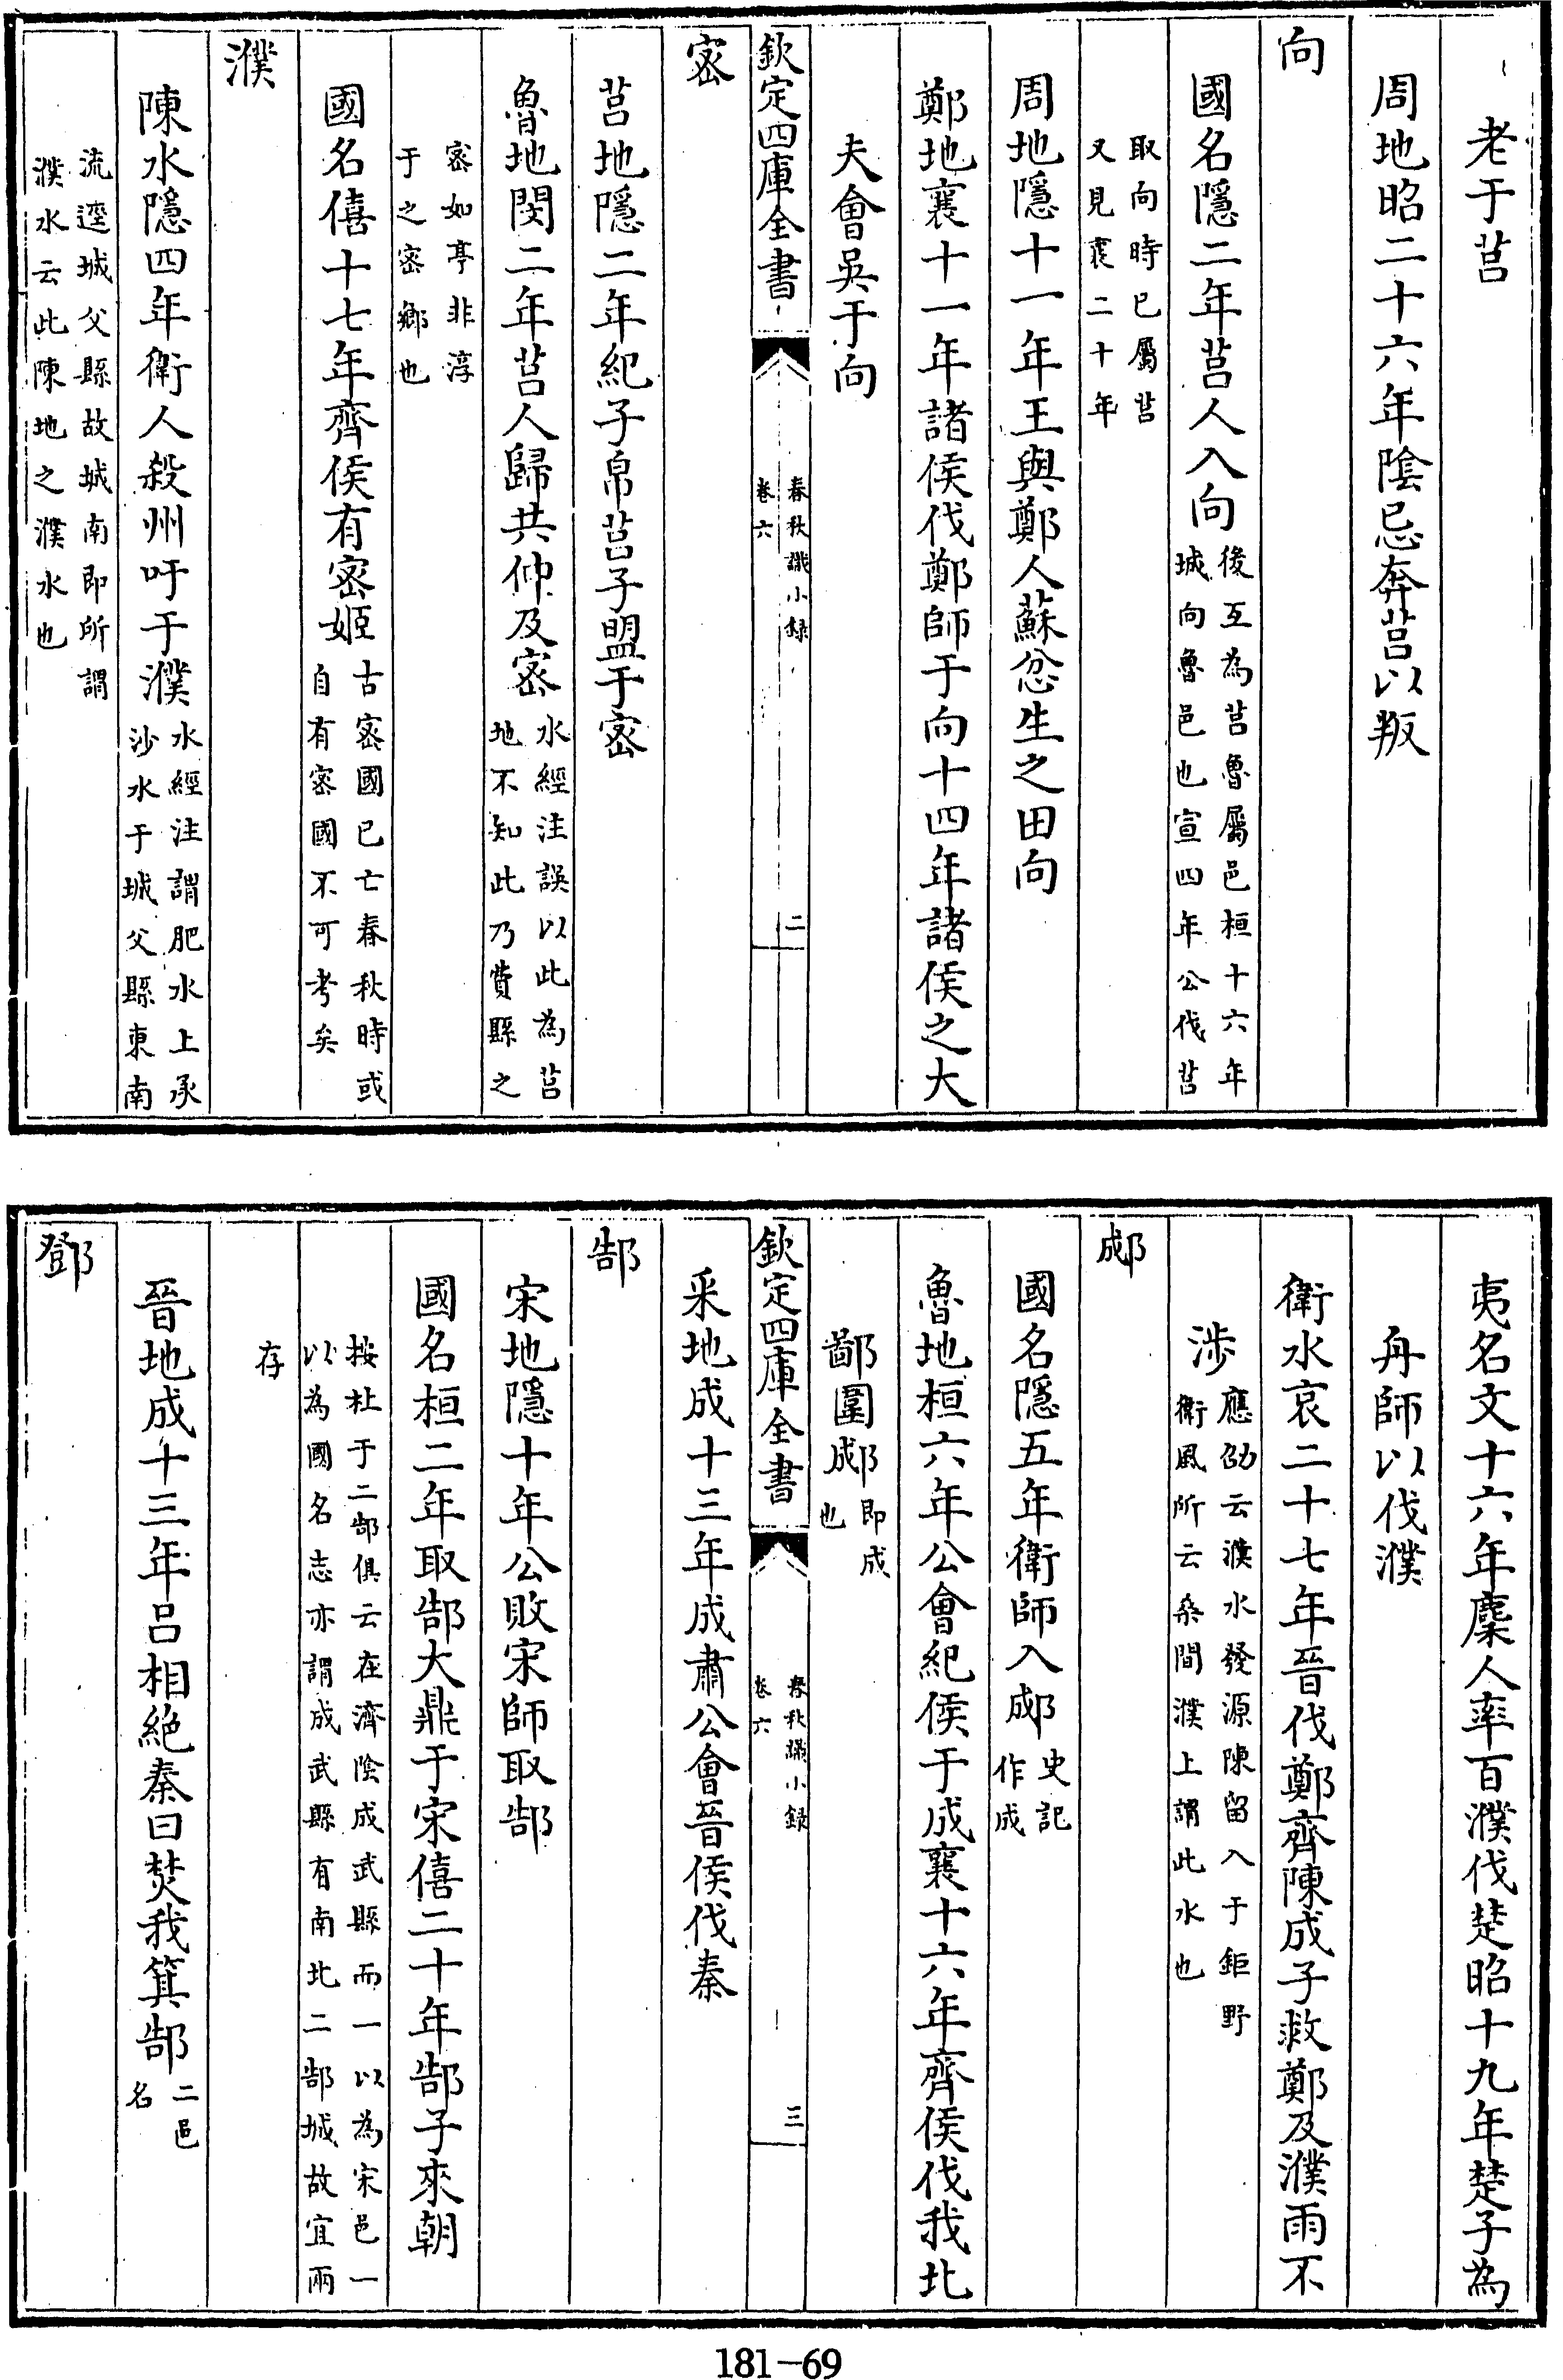 老于莒
周地昭二十六年陰忌奔莒以叛
向
國名隱二年莒人入向後互為莒魯屬邑桓十六年
城向魯邑也宣四年公伐莒
取向時已屬莒
又見襄二十年
周地隱十一年王與鄭人蘇忿生之田向
鄭地襄十一年諸侯伐鄭師于向十四年諸侯之大
夫會吳于向
欽定四庫全書
春秋識小錄
卷六
二
密
莒地隱二年紀子帛莒子盟于密
魯地閔二年莒人歸共仲及密水經注誤以此為莒
地不知此乃費縣之
密如亭非淳
于之密鄉也
國名僖十七年齊侯有密姬古密國已亡春秋時或
自有密國不可考矣
濮
陳水隱四年衛人殺州吁于濮水經注謂肥水上承
沙水于城父縣東南
流逕城父縣故城南即所謂
濮水云此陳地之濮水也
夷名文十六年麇人率百濮伐楚昭十九年楚子為
舟師以伐濮
衛水哀二十七年晉伐鄭齊陳成子救鄭及濮雨不
涉應劭云濮水發源陳留入于鉅野
衛風所云桑間濮上謂此水也
郕
國名隱五年衛師入郕史記
作成
魯地桓六年公會紀侯于成襄十六年齊侯伐我北
鄙圍郕即成
也
欽定四庫全書
春秋識小錄
卷六
三
采地成十三年成肅公會晉侯伐秦
郜
宋地隱十年公敗宋師取郜
國名桓二年取郜大鼎于宋僖二十年郜子來朝
按杜于二郜俱云在濟陰成武縣而一以為宋邑一
以為國名志亦謂成武縣有南北二郜城故宜兩
存
晉地成十三年呂相絕秦曰焚我箕郜二邑
名
鄧
181-69